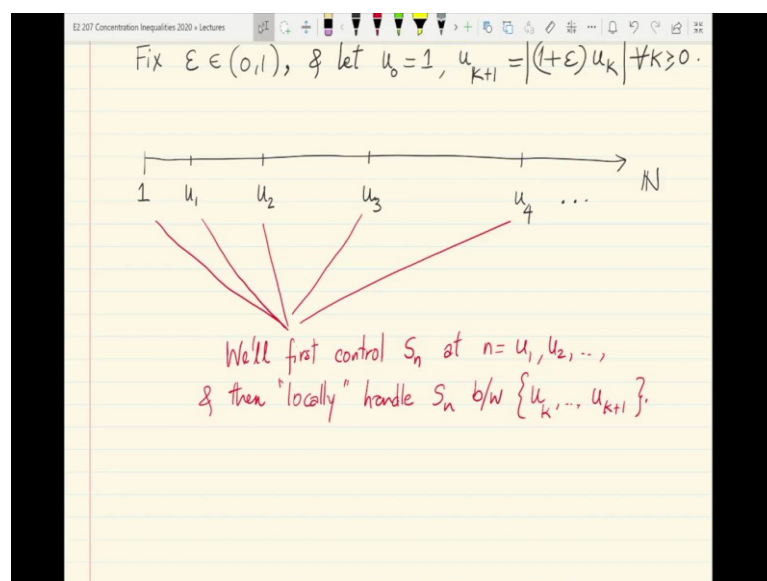 E2 207 Concentration Inequalities 2020 » Lectures
Fix ε ∈ (0,1), & let u₀ = 1, u_{k+1} = |(1+ε) u_k| ∀k≥0.
1 u₁ u₂ u₃ u₄ ... ℕ
We'll first control Sₙ at n = u₁, u₂, ..,
& then "locally" handle Sₙ b/w {u_k, .., u_{k+1}}.